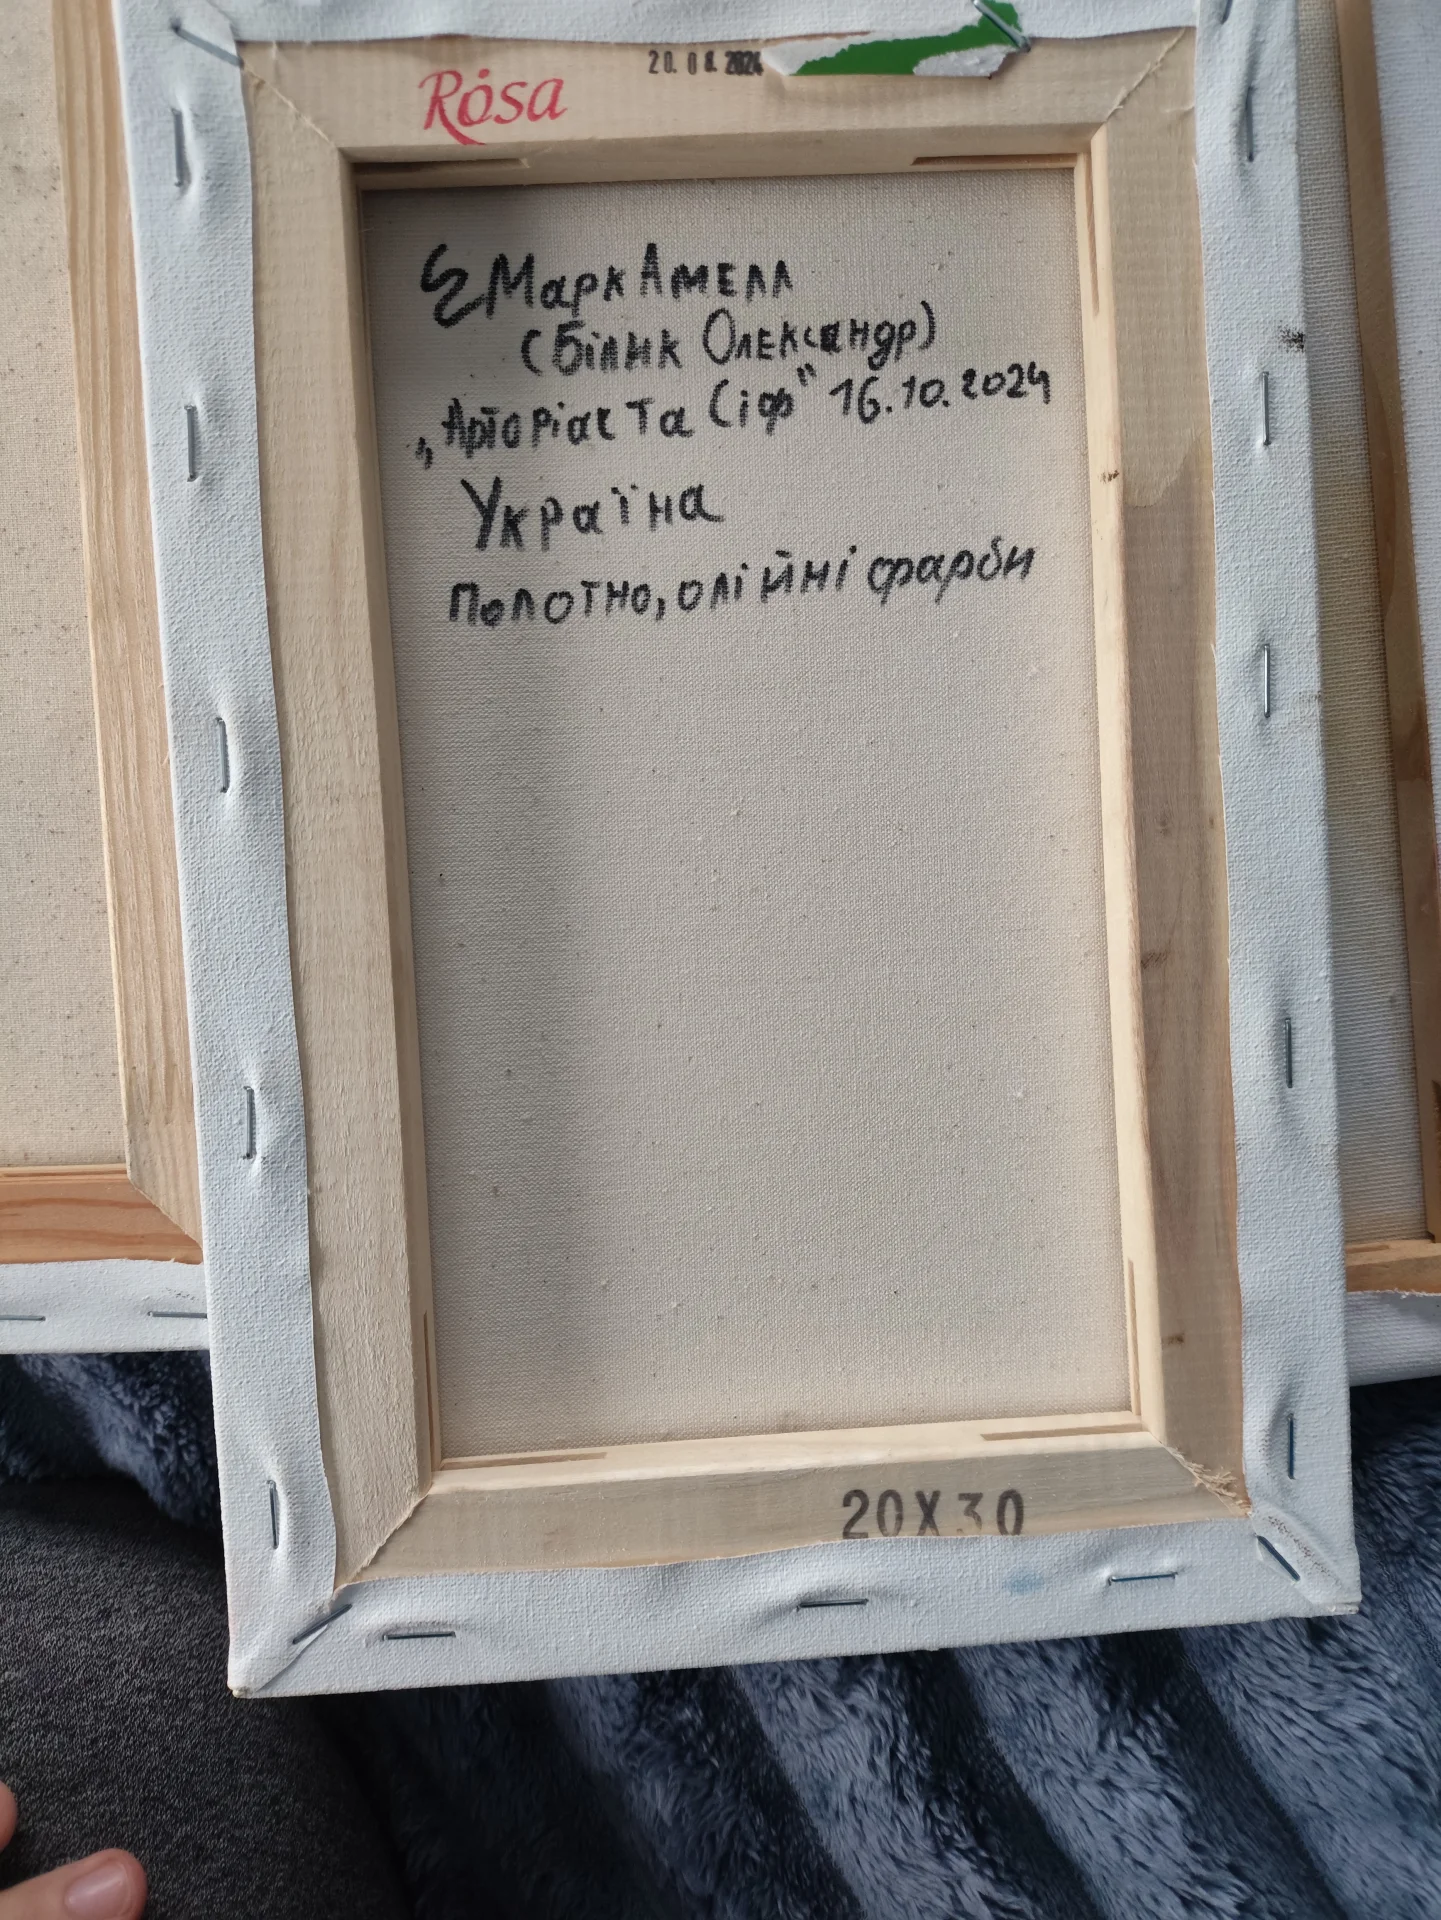 Rósa
20.08.2024
Марк Амелл
(Білик Олександр)
„Арторіас та Сіф" 16.10.2024
Україна
полотно, олійні фарби
20X30